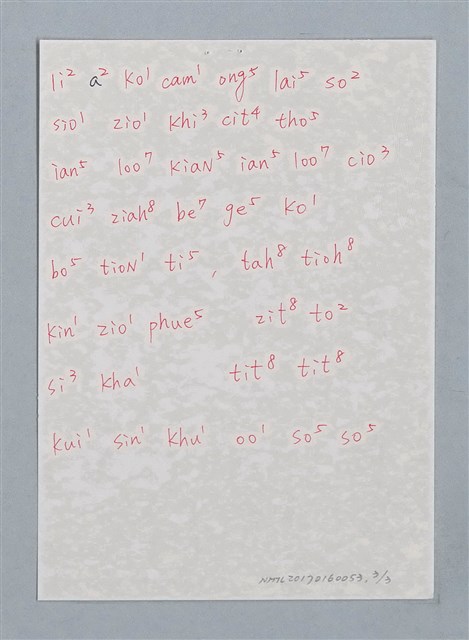 li² a² ko¹ cam¹ ong⁵ lai⁵ so²
sio¹ zio¹ khi³ cit⁴ tho⁵
ian⁵ loo⁷ kiaN⁵ ian⁵ loo⁷ cio³
cui³ ziah⁸ be⁷ ge⁵ ko¹
bo⁵ tioN¹ ti⁵, tah⁸ tioh⁸
kin¹ zio¹ phue⁵ zit⁸ to²
si³ kha¹ tit⁸ tit⁸
kui¹ sin¹ khu¹ oo¹ so⁵ so⁵
NMTL20170160053, 3/3